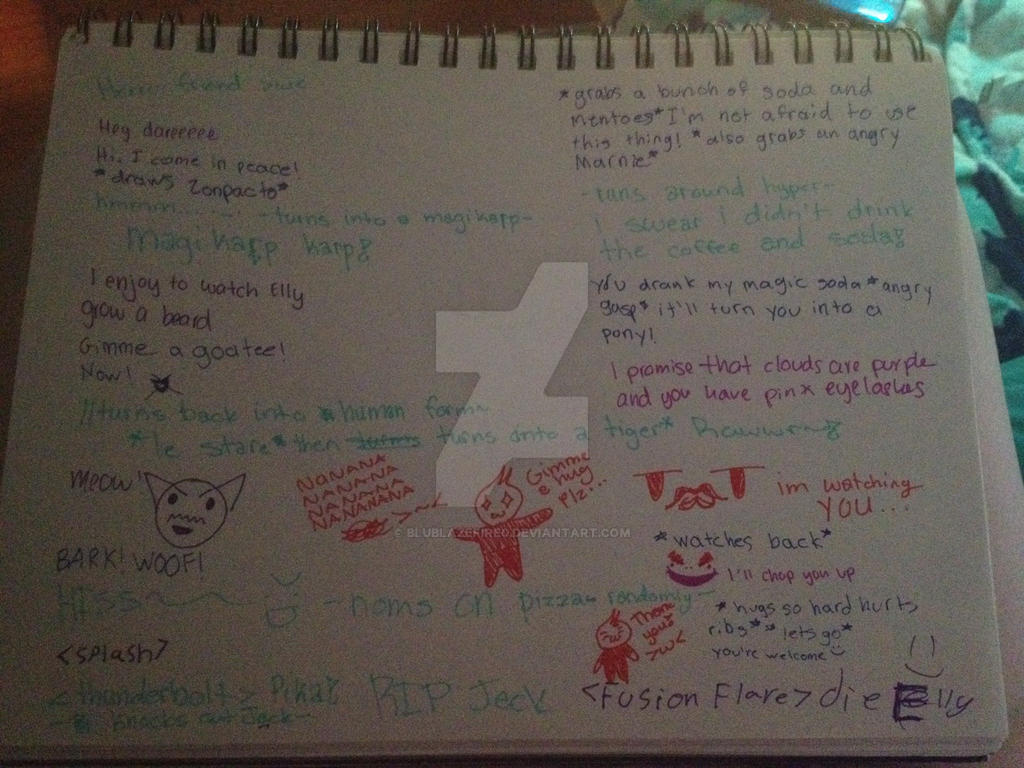 friend
Hey dareeeee
Hi. I come in peace!
*draws Zonpacto*
hmmm...... -turns into a magikarp-
magikarp karp
I enjoy to watch Elly
grow a beard
Gimme a goatee!
Now!
//turns back into human form~
*le stare* then turns into a tiger* Rawwr~
Meow!
BARK! WOOF!
Hiss~~ - noms on pizza randomly-
<splash>
<thunderbolt> Pika! RIP Jeck
knocks out Jack-
NANANA
NANA-NA
NANANA
NANANANA
>~<
Gimme
a hug
plz...
*grabs a bunch of soda and
mentoes* I'm not afraid to use
this thing! *also grabs an angry
Marnie*
-runs around hyper-
i swear i didn't drink
the coffee and soda
You drank my magic soda *angry
gasp* it'll turn you into a
pony!
I promise that clouds are purple
and you have pink eyelashes
im watching
YOU...
*watches back*
I'll chop you up
Thank
you!
>w<
*hugs so hard hurts
ribs* *lets go*
you're welcome
<Fusion Flare> die Elly
© BLUBLAZEFIRE0.DEVIANTART.COM